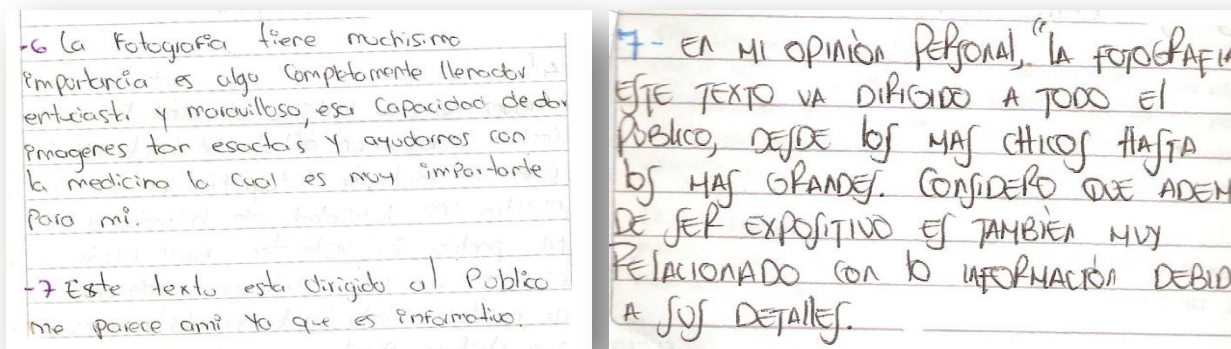 -6 la Fotografia tiene muchisimo
importancia es algo completamente
y maravilloso, esa capacidad de dar
imagenes tan esactas y ayudarnos con
la medicina la cual es muy importante
para mi.
-7 Este texto esta dirigido al Publico
me parece ami ya que es informativo.
7- EN MI OPINIÓN PERSONAL, "LA FOTOGRAFIA
ESTE TEXTO VA DIRIGIDO A TODO El
PÚBLICO, DESDE los MAS CHICOS HASTA
los MAS GRANDES. CONSIDERO QUE ADEM
DE SER EXPOSITIVO ES TAMBIÉN MUY
RELACIONADO CON lo INFORMACIÓN DEBID
A SUS DETALLES.